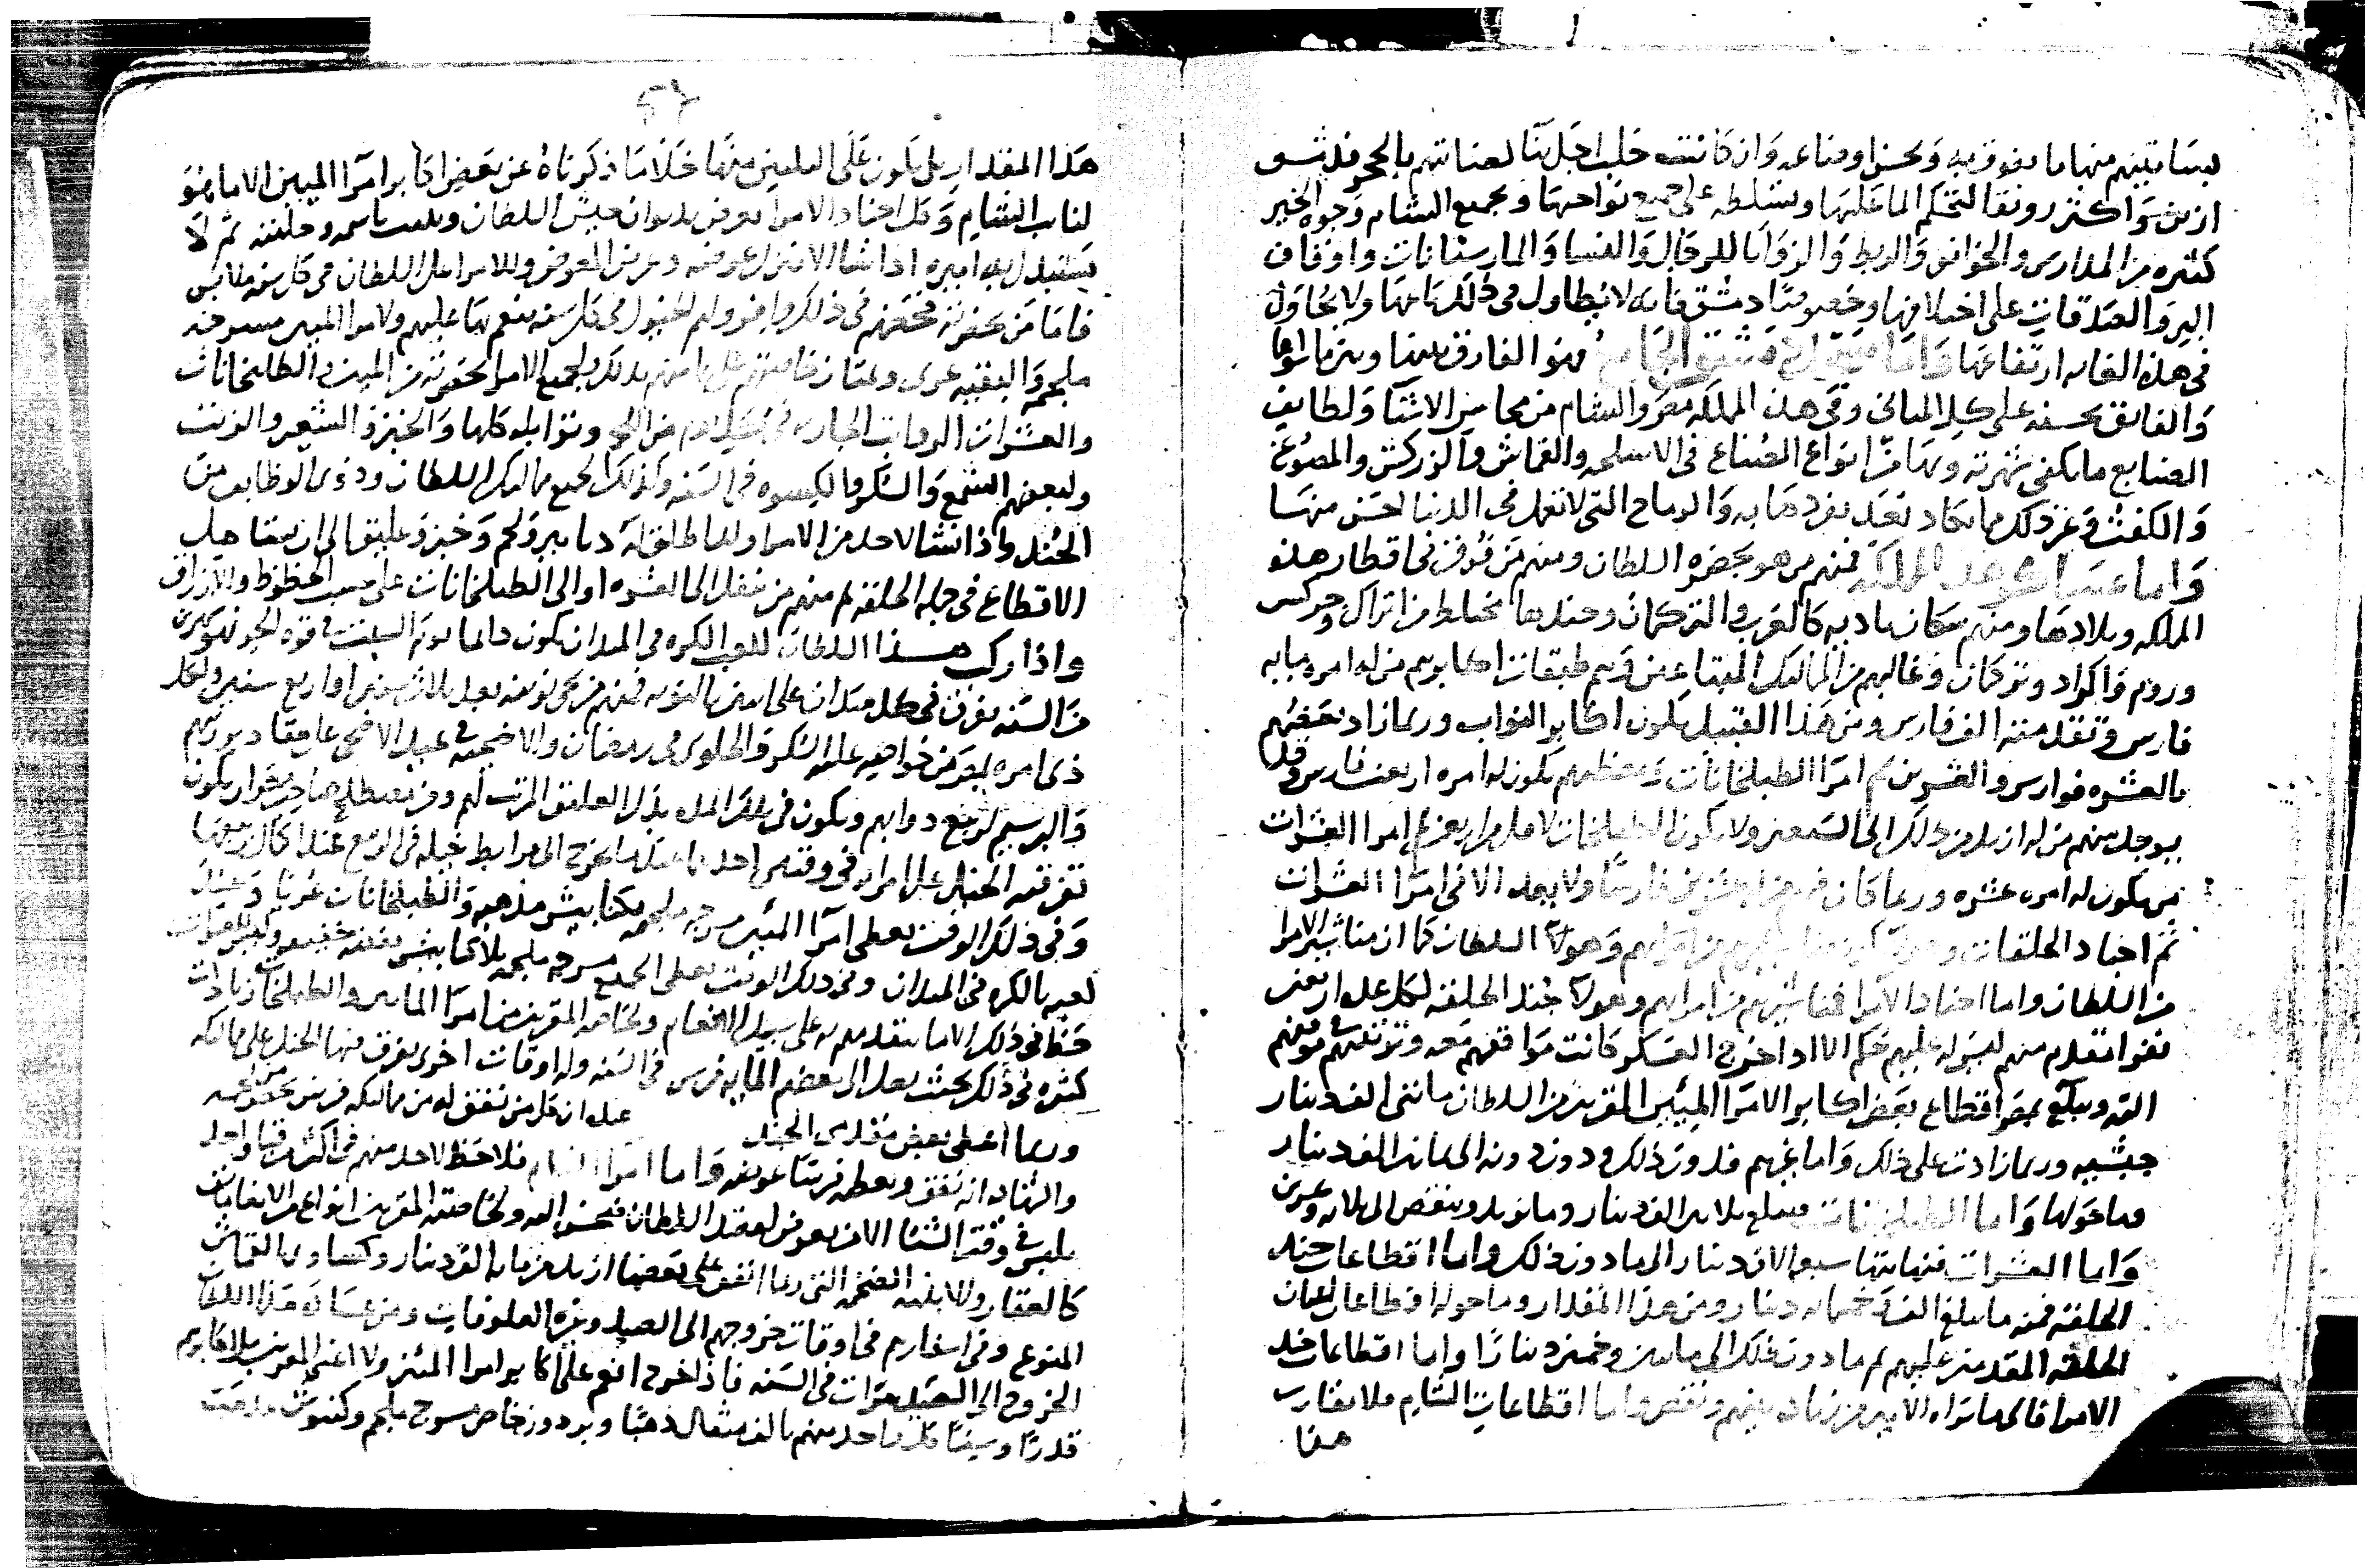 بساتينهم منها ما يفوق به ويحسن اوضاعه وان كانت حلب اجل بنا لعنايتهم بالحجر فدمشق
ازين واكثر رونقا لتحكم الما عليها وتسلطه على جميع نواحيها وبجميع الشام وجوه الخير
كثيره من المدارس والخوانق والربط والزوايا للرجال والنسا والمارستانات واوقاف
البر والصدقات على اختلافها وخصوصا دمشق فانه لا يطاول في ذلك باعها ولا يحاول
في هذه الغايه ارتفاعها واما مسجد دمشق الجامع فهو الفارق بينها وبين ما سواها
والفايق بحسنه على كل المباني وفي هذه المملكه مصر والشام من محاسن الاشيا ولطايف
الصنايع ما تكفي شهرته وبها من انواع الصناع في الاسلحه والقماش والزركش والمصوغ
والكفت وغير ذلك مما يكاد يعد تفردها به والرماح التي لا تعمل في الدنيا احسن منها
واما عساكر هذه المملكه فمنهم من هو بحضره السلطان ومنهم من فرق في اقطار هذه
المملكه وبلادها ومنهم سكان باديه كالعرب والتركمان وجندها مختلط من اتراك وجركس
وروم واكراد وتركمان وغالبهم من المماليك المبتاعين وهم طبقات اكابرهم من له امره مايه
فارس وتقدمته الف فارس ومن هذا القبيل يكون اكابر النواب وربما زاد بعضهم
بالعشره فوارس والعشرين ثم امرا الطبلخانات ومعظمهم يكون له امره اربعين فارس وقد
يوجد منهم من له ازيد من ذلك الى السبعين ولا تكون الطبلخانات لاقل من اربعين ثم امرا العشرات
من يكون له امره عشره وربما كان فيهم من له عشرين فارسا ولا يعد الا في امرا العشرات
ثم اجناد الحلقات وهولا السلطان كما ان مناشير الامرا
من السلطان واما اجناد الامرا فمناشيرهم من امرايهم وهولا جند الحلقه لكل عده اربعين
نفرا مقدم منهم ليس له عليهم حكم الا اذا خرج العسكر كانت مواقفهم معه وترتيبهم في موقفهم
اليه ويبلغ بمصر اقطاع بعض اكابر الامرا المئين المقربين من السلطان مائتي الف دينار
جيشيه وربما زادت على ذلك واما غيرهم فدون ذلك ودون دونه الى ثمانين الف دينار
وما حولها واما الطبلخانات فمبلغ ثلاثين الف دينار وما يزيد وينقص الى ثلاثه وعشرين
واما العشرات فنهايتها سبعه الاف دينار الى ما دون ذلك واما اقطاعات جند
الحلقه فمنه ما يبلغ الف وخمسمايه دينار ومن هذا المقدار وما حوله اقطاعات اعيان
الحلقه المقدمين عليهم ثم ما دون ذلك الى مايتين وخمسين دينارا واما اقطاعات جند
الامرا فالى ما يراه الامير من زياده بينهم ونقص واما اقطاعات الشام فلا تقارب
هذا
هذا المقدار بل يكون على الثلثين منها خلا ما ذكرناه عن بعض اكابر امرا المئين الا ما هو
لنايب الشام وكل اجناد الامرا تعرض بديوان جيش السلطان ويثبت باسمه وحليته ثم لا
يستبدل به اميره اذا شا الا بتنزيل عوضه وعرض المعوض وللامرا على السلطان في كل سنه ملابس
فاما من بحضرته فحظهم في ذلك وافر ولهم الخيول في كل سنه ينعم بها عليهم ولامرا المئين مسرجه
ملجمه والبقيه عرى ويمتاز خاصتهم على عامتهم بذلك ولجميع الامرا بحضرته من المئين والطبلخانات
والعشرات الرواتب الجاريه في كل يوم من اللحم وتوابله كلها والخبز والشعير والزيت
ولبعضهم الشمع والسكر والكسوه في السنه وكذلك لجميع مماليك السلطان وذوى الوظايف من
الجند واذا نشا لاحد من الامرا ولد اطلق له دنانير ولحم وخبز وعليق الى ان يتاهل
الاقطاع في جمله الحلقه ثم منهم من ينقل الى العشره او الى الطبلخانات على حسب الحظوظ والارزاق
واذا ركب هذا السلطان للعب الكره في الميدان يكون دائما يوم السبت في قوه الحر
من السنه يفرق في كل ميدان على اميرين بالنوبه فمنهم من تجي نوبته بعد ثلاث سنين او اربع سنين ولكل
ذي امره بمصر من خواصه عليه السكر والحلوى في رمضان والاضحيه في عيد الاضحى على مقادير رتبهم
والبرسيم لربيع دوابهم ويكون في تلك المده بدل العليق المرتب لهم ومن مصطلح صاحب مصر ان يكون
تفرقه الخيل على امرايه في وقتين احدهما عندما يخرج الى مرابط خيله في الربيع عند اكمال ربيعها
وفي ذلك الوقت يعطى امرا المئين مسرجه ملجمه بكنابيش مذهبه والطبلخانات عريا وعند
لعبه بالكره في الميدان وفي ذلك الوقت يعطى الجميع مسرجه ملجمه بلا كنابيش بفضه خفيفه وليس للعشرات
حظ في ذلك الا ما يتفقدهم به على سبيل الانعام ولخاصته المقربين من امرا المايين والطبلخانات زيادات
كثيره في ذلك بحيث يصل الى بعضهم المايه فرس في السنه وله اوقات اخرى يفرق فيها الخيل على مماليكه
وربما اعطى بعض مقدمي الجند عده ان كل من نفق له من مماليكه فرس يحضر من لحمه
والشهاده انه نفق ويعطيه فرسا عوضه واما امرا الشام فلا حظ لاحد منهم في اكثر من قبا واحد
يلبس في وقت الشتا الا من يعوض لقصد السلطان فيحسن اليه ولخاصته المقربين انواع من الانعامات
كالعقار والابنيه الضخمه التي ربما انفق على بعضها ازيد من مايه الف دينار وكساوى القماش
المنوع وفي اسفارهم في اوقات خروجهم الى الصيد وغيره العلوفات ومن عادات هذا السلطان
الخروج الى الصيد مرات في السنه فاذا خرج انعم على اكابر امرا المئين ولا اعني المقربين بل اكابرهم
قدرا وسنا كل واحد منهم بالف مثقال ذهبا وبرذون خاص مسرج ملجم وكنبوش مذهب